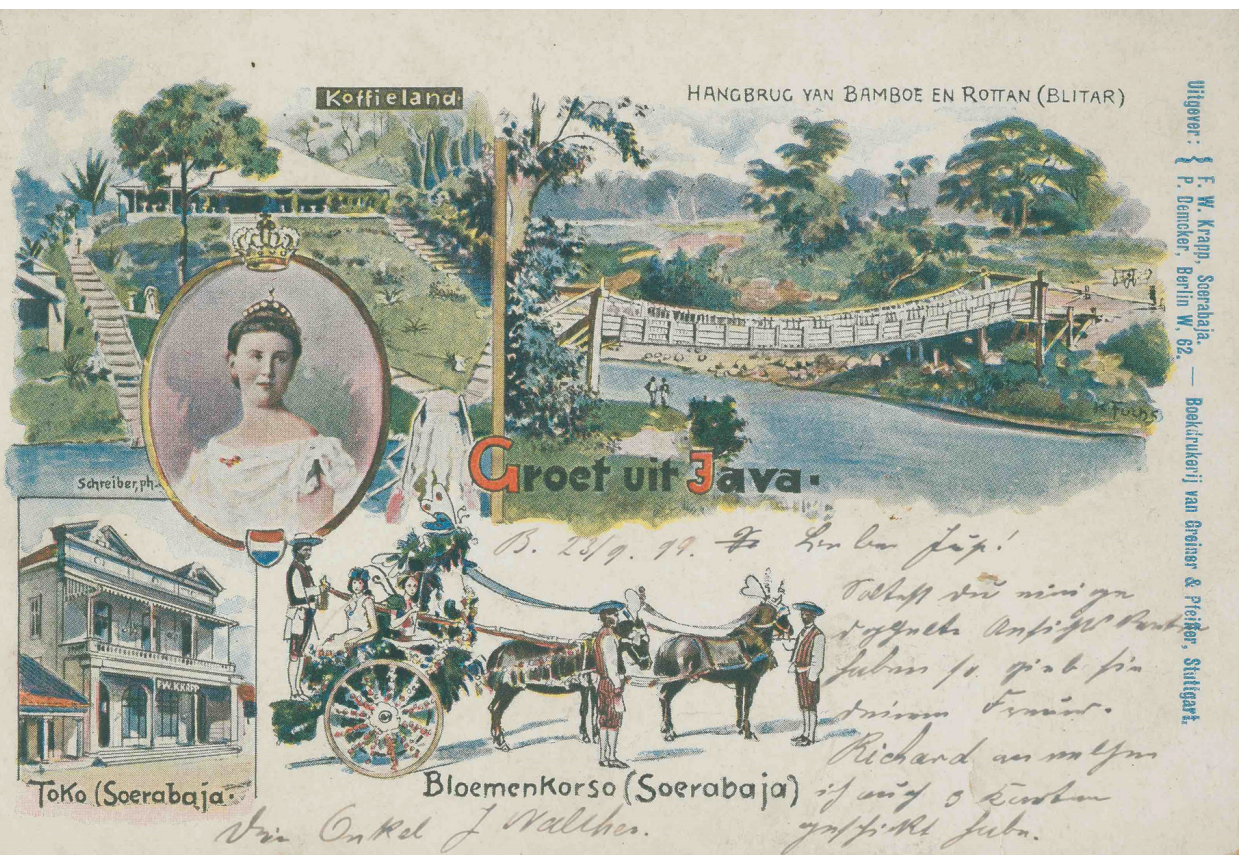 Koffieland.
HANGBRUG VAN BAMBOE EN ROTTAN (BLITAR)
Uitgever: { F. W. Krapp, Soerabaja.
{ P. Demcker, Berlin W, 62. — Boekdrukerij van Greiner & Pfeiffer, Stuttgart.
K. Fuchs
Schreiber, ph.
Groet uit Java.
F.W. KRAPP
Toko (Soerabaja.
Bloemenkorso (Soerabaja)
B. 23/9. 99. Lieber Jup!
Solltest du einige
doppelte Ansichtskarten
haben so gieb sie
deinem Freund.
Richard an welchen
ich auch 3 Karten
geschickt habe.
Dein Onkel J Walther.